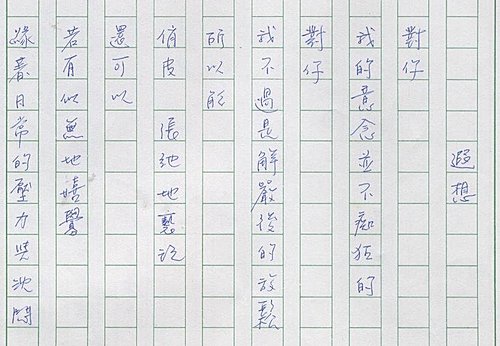 遐想
對你
我的意念並不痴狂的
對你
我不過是解嚴後的放鬆
所以能
俏皮 張弛地褻
還可以
若有似無地嬉
緣着日常的壓力與沈悶